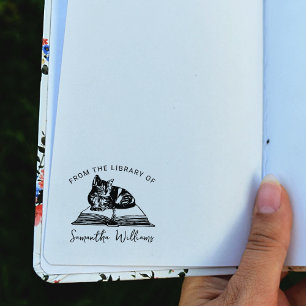 FROM THE LIBRARY OF
Samantha Williams